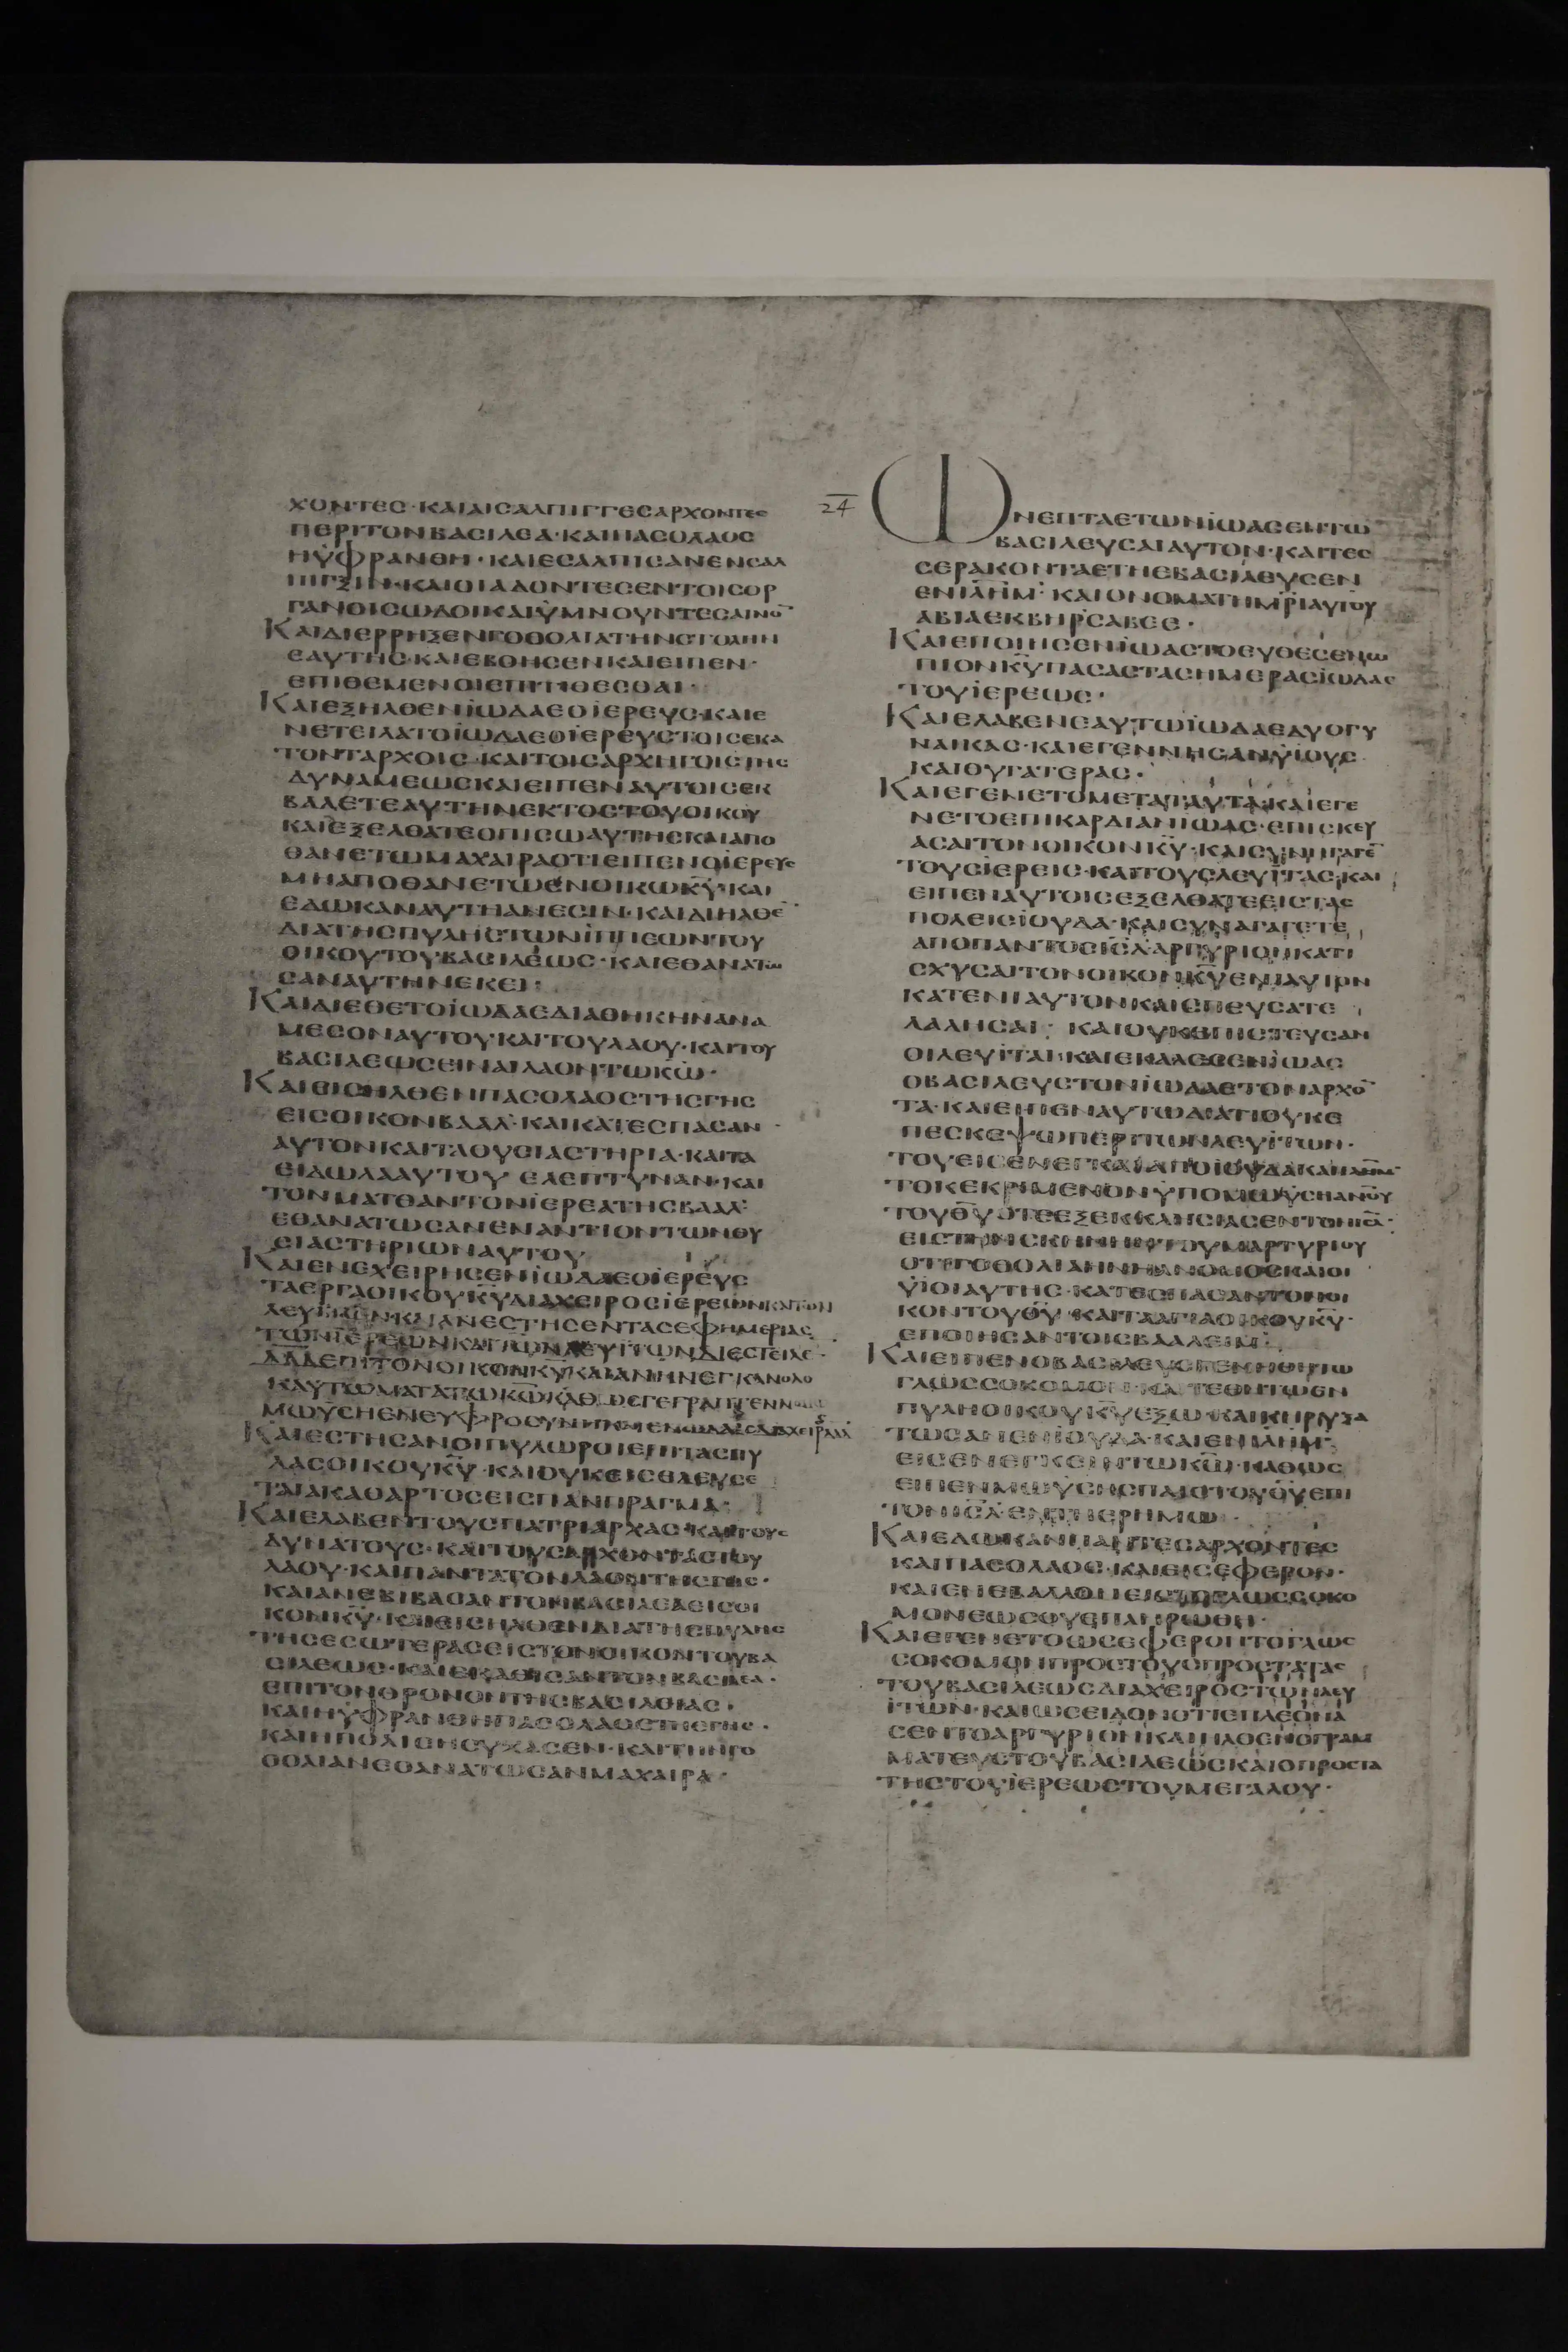 ΧΟΝΤΕΣ·ΚΑΙΑΙΣΑΛΠΙΓΓΕΣΑΡΧΟΝΤΕΣ
ΠΕΡΙΤΟΝΒΑΣΙΛΕΑ·ΚΑΙΠΑΣΟΛΑΟΣ
ΗΫΦΡΑΝΘΗ·ΚΑΙΕΣΑΛΠΙΣΑΝΕΝΣΑΛ
ΠΙΓΞΙΝ·ΚΑΙΟΙΑΔΟΝΤΕΣΕΝΤΟΙΣΟΡ
ΓΑΝΟΙΣΩΔΟΙΚΑΙΫΜΝΟΥΝΤΕΣΑΙΝΟ̅
ΚΑΙΔΙΕΡΡΗΞΕΝΓΟΘΟΛΙΑΤΗΝΣΤΟΛΗΝ
ΕΑΥΤΗΣ·ΚΑΙΕΒΟΗΣΕΝΚΑΙΕΙΠΕΝ·
ΕΠΙΘΕΜΕΝΟΙΕΠΙΤΙΘΕΣΘΑΙ·
ΚΑΙΕΞΗΛΘΕΝΪΩΔΑΕΟΪΕΡΕΥΣ·ΚΑΙΕ
ΝΕΤΕΙΛΑΤΟΪΩΔΑΕΟΪΕΡΕΥΣΤΟΙΣΕΚΑ
ΤΟΝΤΑΡΧΟΙΣ·ΚΑΙΤΟΙΣΑΡΧΗΓΟΙΣΤΗΣ
ΔΥΝΑΜΕΩΣΚΑΙΕΙΠΕΝΑΥΤΟΙΣΕΚ
ΒΑΛΕΤΕΑΥΤΗΝΕΚΤΟΣΤΟΥΟΙΚΟΥ
ΚΑΙΕΞΕΛΘΑΤΕΟΠΙΣΩΑΥΤΗΣΚΑΙΑΠΟ
ΘΑΝΕΤΩΜΑΧΑΙΡΑΟΤΙΕΙΠΕΝΟΪΕΡΕΥΣ
ΜΗΑΠΟΘΑΝΕΤΩΕΝΟΙΚΩΚ̅Υ̅·ΚΑΙ
ΕΔΩΚΑΝΑΥΤΗΑΝΕΣΙΝ·ΚΑΙΔΙΗΛΘΕ̅
ΔΙΑΤΗΣΠΥΛΗΣΤΩΝΪΠΠΕΩΝΤΟΥ
ΟΙΚΟΥΤΟΥΒΑΣΙΛΕΩΣ·ΚΑΙΕΘΑΝΑΤΩ
ΣΑΝΑΥΤΗΝΕΚΕΙ·
ΚΑΙΔΙΕΘΕΤΟΪΩΔΑΕΔΙΑΘΗΚΗΝΑΝΑ
ΜΕΣΟΝΑΥΤΟΥΚΑΙΤΟΥΛΑΟΥ·ΚΑΙΤΟΥ
ΒΑΣΙΛΕΩΣΕΙΝΑΙΛΑΟΝΤΩΚ̅Ω̅·
ΚΑΙΕΙΣΗΛΘΕΝΠΑΣΟΛΑΟΣΤΗΣΓΗΣ
ΕΙΣΟΙΚΟΝΒΑΑΛ·ΚΑΙΚΑΤΕΣΠΑΣΑΝ
ΑΥΤΟΝΚΑΙΤΑΘΥΣΙΑΣΤΗΡΙΑ·ΚΑΙΤΑ
ΕΙΔΩΛΑΑΥΤΟΥ ΕΛΕΠΤΥΝΑΝ·ΚΑΙ
ΤΟΝΜΑΤΘΑΝΤΟΝΪΕΡΕΑΤΗΣΒΑΑΛ·
ΕΘΑΝΑΤΩΣΑΝΕΝΑΝΤΙΟΝΤΩΝΘΥ
ΣΙΑΣΤΗΡΙΩΝΑΥΤΟΥ
ΚΑΙΕΝΕΧΕΙΡΗΣΕΝΪΩΔΑΕΟΪΕΡΕΥΣ
ΤΑΕΡΓΑΟΙΚΟΥΚ̅Υ̅ΔΙΑΧΕΙΡΟΣΪΕΡΕΩΝΚΑΙΤΩΝ
ΚΑΙΑΝΕΣΤΗΣΕΝΤΑΣΕΦΗΜΕΡΙΑΣ
ΤΩΝΪΕΡΕΩΝΚΑΙΤΩΝΛΕΥΪΤΩΝΔΙΕΣΤΕΙΛΕ
ΔΑΔΕΠΙΤΟΝΟΙΚΟΝΚ̅Υ̅ΚΑΙΑΝΗΝΕΓΚΑΝΟΛΟ
ΜΩΫΣΗΕΝΕΥΦΡΟΣΥΝΗ
ΚΑΙΕΣΤΗΣΑΝΟΙΠΥΛΩΡΟΙΕΠΙΤΑΣΠΥ
ΛΑΣΟΙΚΟΥΚ̅Υ̅·ΚΑΙΟΥΚΕΙΣΕΛΕΥΣΕ
ΤΑΙΑΚΑΘΑΡΤΟΣΕΙΣΠΑΝΠΡΑΓΜΑ·
ΚΑΙΕΛΑΒΕΝΤΟΥΣΠΑΤΡΙΑΡΧΑΣ·ΚΑΙΤΟΥΣ
ΔΥΝΑΤΟΥΣ·ΚΑΙΤΟΥΣΑΡΧΟΝΤΑΣΤΟΥ
ΛΑΟΥ·ΚΑΙΠΑΝΤΑΤΟΝΛΑΟΝΤΗΣΓΗΣ·
ΚΑΙΑΝΕΒΙΒΑΣΑΝΤΟΝΒΑΣΙΛΕΑΕΙΣΟΙ
ΚΟΝΚ̅Υ̅·ΚΑΙΕΙΣΗΛΘΕΝΔΙΑΤΗΣΠΥΛΗΣ
ΤΗΣΕΣΩΤΕΡΑΣΕΙΣΤΟΝΟΙΚΟΝΤΟΥΒΑ
ΣΙΛΕΩΣ·ΚΑΙΕΚΑΘΙΣΑΝΤΟΝΒΑΣΙΛΕΑ·
ΕΠΙΤΟΝΘΡΟΝΟΝΤΗΣΒΑΣΙΛΕΙΑΣ·
ΚΑΙΗΫΦΡΑΝΘΗΠΑΣΟΛΑΟΣΤΗΣΓΗΣ·
ΚΑΙΗΠΟΛΙΣΗΣΥΧΑΣΕΝ·ΚΑΙΤΗΝΓΟ
ΘΟΛΙΑΝΕΘΑΝΑΤΩΣΑΝΜΑΧΑΙΡΑ·
24
ΩΝΕΠΤΑΕΤΩΝΪΩΑΣΕΝΤΩ
ΒΑΣΙΛΕΥΣΑΙΑΥΤΟΝ·ΚΑΙΤΕΣ
ΣΕΡΑΚΟΝΤΑΕΤΗΕΒΑΣΙΛΕΥΣΕΝ
ΕΝΪΛ̅Η̅Μ̅·ΚΑΙΟΝΟΜΑΤΗΜ̅Ρ̅Ι̅ΑΥΤΟΥ
ΑΒΙΑΕΚΒΗΡΣΑΒΕΕ·
ΚΑΙΕΠΟΙΗΣΕΝΪΩΑΣΤΟΕΥΘΕΣΕΝΩ
ΠΙΟΝΚ̅Υ̅ΠΑΣΑΣΤΑΣΗΜΕΡΑΣΪΩΔΑΕ
ΤΟΥΪΕΡΕΩΣ·
ΚΑΙΕΛΑΒΕΝΕΑΥΤΩΪΩΔΑΕΔΥΟΓΥ
ΝΑΙΚΑΣ·ΚΑΙΕΓΕΝΝΗΣΑΝΫΙΟΥΣ
ΚΑΙΘΥΓΑΤΕΡΑΣ·
ΚΑΙΕΓΕΝΕΤΟΜΕΤΑΤΑΥΤΑΚΑΙΕΓΕ
ΝΕΤΟΕΠΙΚΑΡΔΙΑΝΪΩΑΣ·ΕΠΙΣΚΕΥ
ΑΣΑΙΤΟΝΟΙΚΟΝΚ̅Υ̅·ΚΑΙΣΥΝΗΓΑΓΕ̅
ΤΟΥΣΪΕΡΕΙΣ·ΚΑΙΤΟΥΣΛΕΥΪΤΑΣ·ΚΑΙ
ΕΙΠΕΝΑΥΤΟΙΣΕΞΕΛΘΑΤΕΕΙΣΤΑΣ
ΠΟΛΕΙΣΪΟΥΔΑ·ΚΑΙΣΥΝΑΓΑΓΕΤΕ
ΑΠΟΠΑΝΤΟΣΪ̅Σ̅Λ̅ΑΡΓΥΡΙΟΝΚΑΤΙ
ΣΧΥΣΑΙΤΟΝΟΙΚΟΝΚ̅Υ̅ΕΝΙΑΥΤΟΝ
ΚΑΤΕΝΙΑΥΤΟΝΚΑΙΣΠΕΥΣΑΤΕ
ΛΑΛΗΣΑΙ· ΚΑΙΟΥΚΕΠΙΣΤΕΥΣΑΝ
ΟΙΛΕΥΪΤΑΙ·ΚΑΙΕΚΑΛΕΣΕΝΪΩΑΣ
ΟΒΑΣΙΛΕΥΣΤΟΝΪΩΔΑΕΤΟΝΑΡΧΟ̅
ΤΑ·ΚΑΙΕΙΠΕΝΑΥΤΩΔΙΑΤΙΟΥΚΕ
ΠΕΣΚΕΨΩΠΕΡΙΤΩΝΛΕΥΪΤΩΝ·
ΤΟΥΕΙΣΕΝΕΓΚΑΙΑΠΟΪΟΥΔΑΚΑΙΪΛ̅Η̅Μ̅
ΤΟΚΕΚΡΙΜΕΝΟΝΫΠΟΜΩΫΣΗΑΝ̅Ο̅Υ̅
ΤΟΥΘ̅Υ̅ΟΤΕΕΞΕΚΚΛΗΣΙΑΣΕΝΤΟΝΪ̅Σ̅Λ̅·
ΕΙΣΤΗΝΣΚΗΝΗΝΤΟΥΜΑΡΤΥΡΙΟΥ
ΟΤΙΓΟΘΟΛΙΑΗΝΗΑΝΟΜΟΣΚΑΙΟΙ
ΫΙΟΙΑΥΤΗΣ·ΚΑΤΕΣΠΑΣΑΝΤΟΝΟΙ
ΚΟΝΤΟΥΘ̅Υ̅·ΚΑΙΤΑΑΓΙΑΟΙΚΟΥΚ̅Υ̅·
ΕΠΟΙΗΣΑΝΤΟΙΣΒΑΑΛΕΙΜ·
ΚΑΙΕΙΠΕΝΟΒΑΣΙΛΕΥΣΓΕΝΗΘΗΤΩ
ΓΛΩΣΣΟΚΟΜΟΝ·ΚΑΙΤΕΘΗΤΩΕΝ
ΠΥΛΗΟΙΚΟΥΚ̅Υ̅ΕΞΩ·ΚΑΙΚΗΡΥΞΑ
ΤΩΣΑΝΕΝΪΟΥΔΑ·ΚΑΙΕΝΪΛ̅Η̅Μ̅·
ΕΙΣΕΝΕΓΚΕΙΝΤΩΚ̅Ω̅·ΚΑΘΩΣ
ΕΙΠΕΝΜΩΫΣΗΣΠΑΙΣΤΟΥΘ̅Υ̅ΕΠΙ
ΤΟΝΪ̅Σ̅Λ̅ΕΝΤΗΕΡΗΜΩ·
ΚΑΙΕΔΩΚΑΝΠΑΝΤΕΣΑΡΧΟΝΤΕΣ
ΚΑΙΠΑΣΟΛΑΟΣ·ΚΑΙΕΙΣΕΦΕΡΟΝ·
ΚΑΙΕΝΕΒΑΛΛΟΝΕΙΣΤΟΓΛΩΣΣΟΚΟ
ΜΟΝΕΩΣΟΥΕΠΛΗΡΩΘΗ·
ΚΑΙΕΓΕΝΕΤΟΩΣΕΦΕΡΟΝΤΟΓΛΩΣ
ΣΟΚΟΜΟΝΠΡΟΣΤΟΥΣΠΡΟΣΤΑΤΑΣ
ΤΟΥΒΑΣΙΛΕΩΣΔΙΑΧΕΙΡΟΣΤΩΝΛΕΥ
ΪΤΩΝ·ΚΑΙΩΣΕΙΔΟΝΟΤΙΕΠΛΕΟΝΑ
ΣΕΝΤΟΑΡΓΥΡΙΟΝΚΑΙΗΛΘΕΝΟΓΡΑΜ
ΜΑΤΕΥΣΤΟΥΒΑΣΙΛΕΩΣΚΑΙΟΠΡΟΣΤΑ
ΤΗΣΤΟΥΪΕΡΕΩΣΤΟΥΜΕΓΑΛΟΥ·